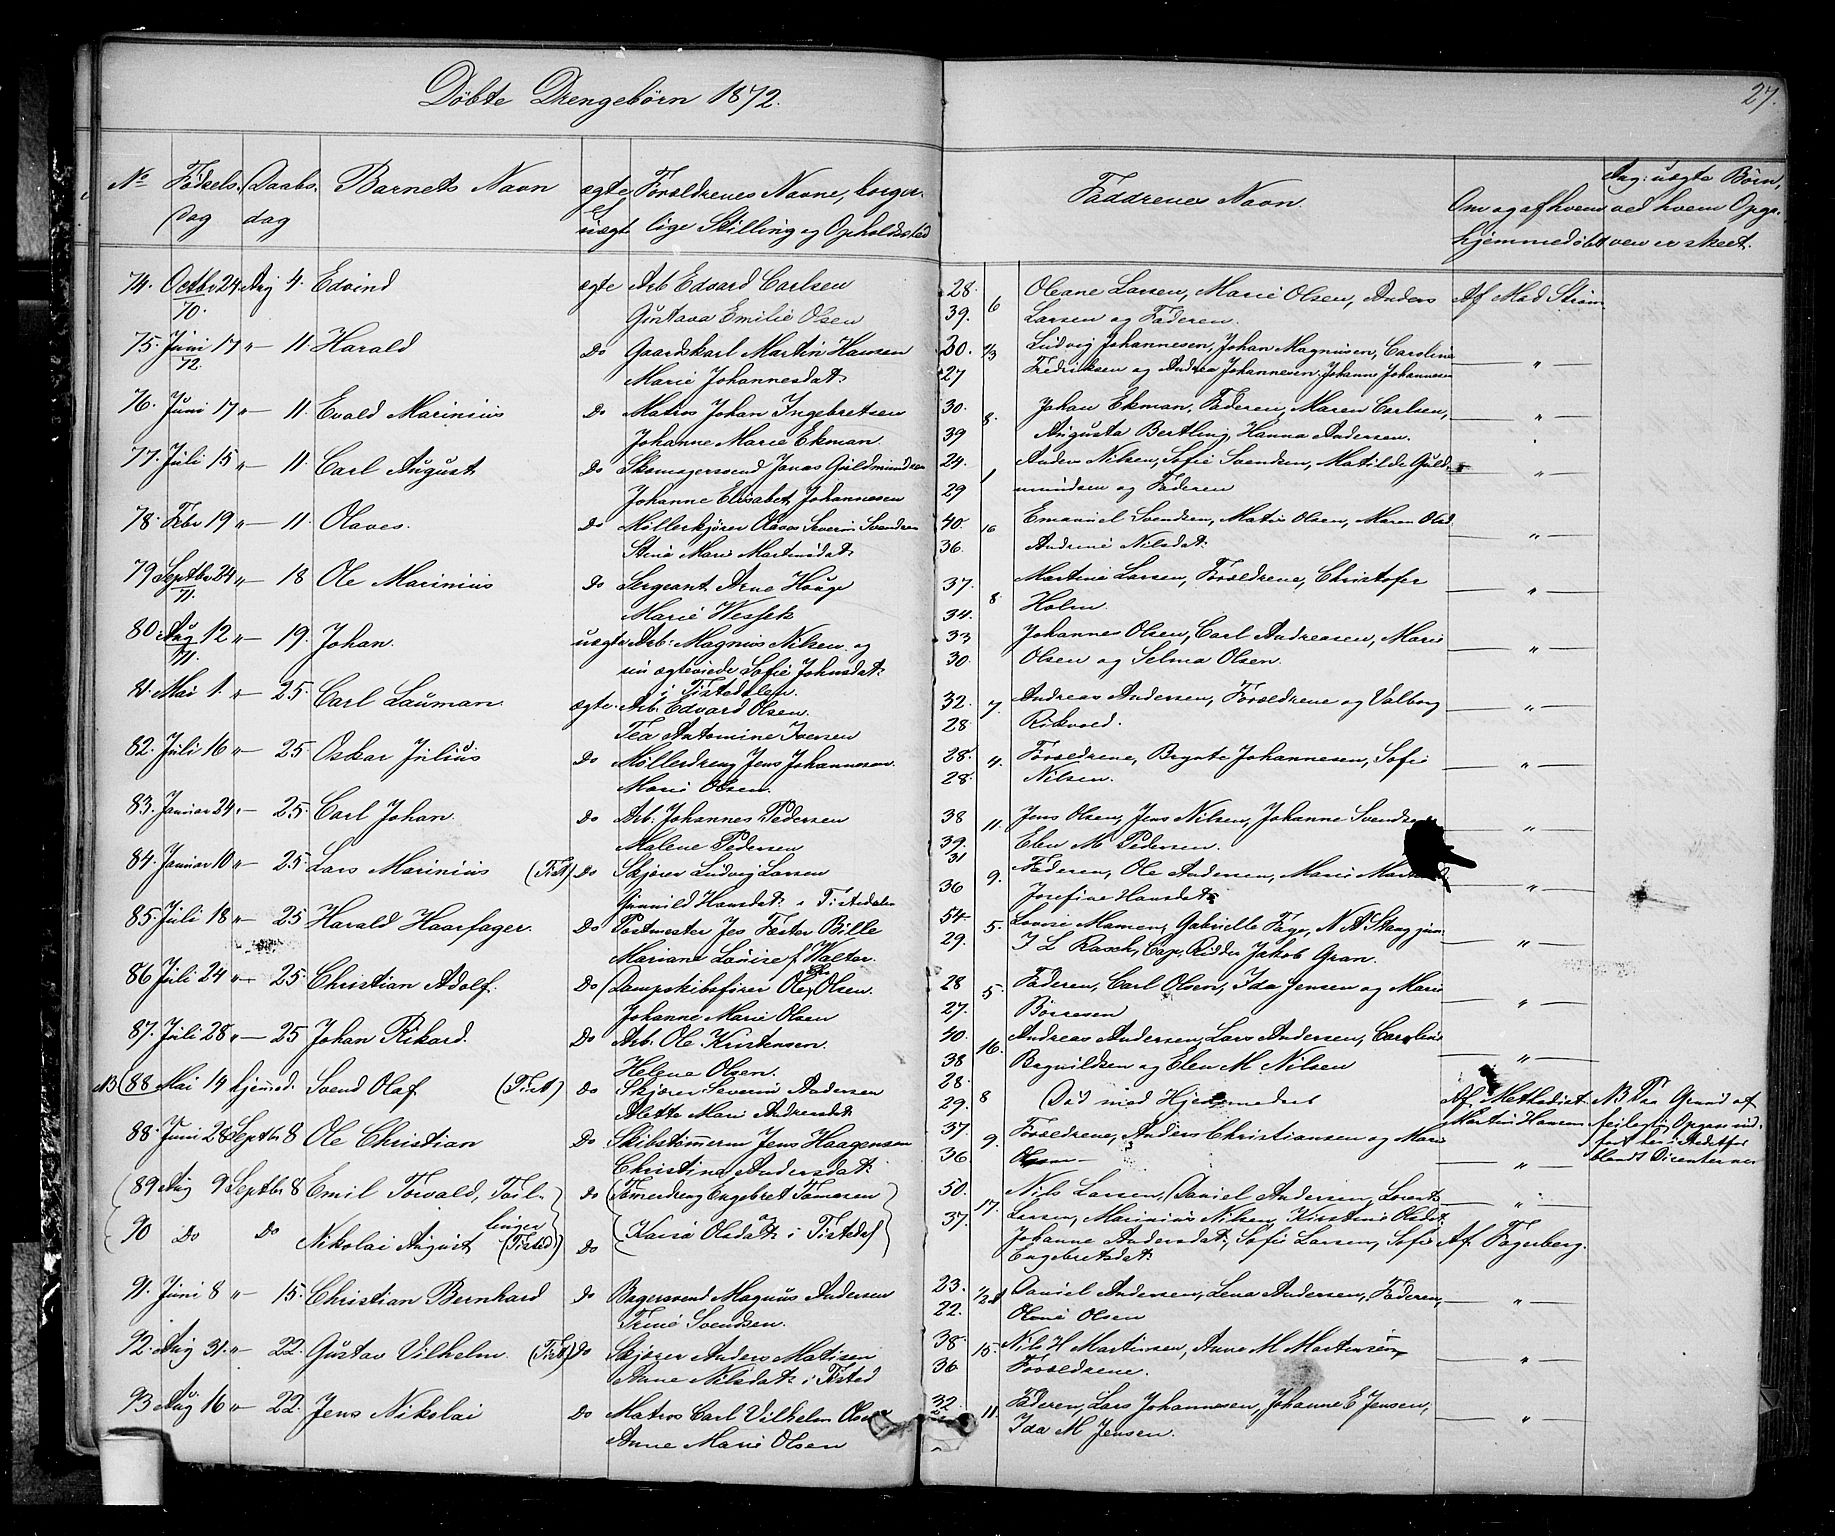 Döbte Drengebörn 1872.
27.
No Födsels dag Daabs dag Barnets Navn ægte & uægt Forældrenes Navne, borgerlige Stilling og Opholdssted Faddrenes Navn Om og af hvem hjemmedöbt Ang: uægte Börn, ved hvem Opgaven er skeet.
74. Octbr 24 Aug 4. Edvind ægte Arb Edvard Carlsen 28. 6 Oleane Larsen, Marie Olsen, Anders Af Mad Ström
70. Gustava Emilie Olsen 39. Larsen og Faderen.
75. Juni 17 " — 11. Harald Do Gaardskarl Martin Hansen 30. 2/3 Ludvig Johannesen, Johan Magnusen, Caroline — " —
72. Marie Johannesdat: 27 Fredriksen og Andrea Johannesen. Johanne Johannesen
76. Juni 17 " — 11. Evald Marinius Do Matros Johan Ingebretsen 30. 8. Johan Ekman, Faderen, Maren Carlsen, — " —
Johanne Marie Ekman. 39 Augusta Bertling, Hanna Andersen.
77. Juli 15 " — 11. Carl August Do Skomagersvend Jonas Guldmundsen 24. 1 Anders Nilsen, Sofie Svendsen, Matilde Guld- — " —
Johanne Elisabet Johannesen 29 mundsen og Faderen
78. Febr 19 " — 11. Olaves. Do Möllerkjörer Olaves Severin Svendsen 40. 16 Emanuel Svendsen, Matis Olsen, Maren Olsd. — " —
Stine Marie Martinsdat: 36. Andrine Nilsdat:
79 Septbr 24 " — 18 Ole Marinius Do Sergeant Arne Hauge 37. 8 Martine Larsen, Forældrene, Christofer — " —
71. Marie 34. Holm.
80. Aug 12 " — 19. Johan. uægte Arb: Magnus Nilsen og 33 Johannes Olsen, Carl Andreasen, Marie — " —
71. Sofie Johnsdat: 30. Olsen og Selma Olsen.
i Tistedalen.
81. Mai 1. " — 25. Carl Lauman ægte. Arb. Edvard Olsen. 32. 7. Andreas Andersen, Forældrene og Valborg — " —
Tea Antomine Iversen 28
82. Juli 16 " — 25 Oskar Julius Do Möllerdreng Jens Johannesen. 28. 4. Forældrene, Bernte Johannesen, Sofie — " —
Marie Olsen. 28. Nilsen.
83. Januar 24 " — 25. Carl Johan. Do Arb. Johannes Pedersen 38 11. Jens Olsen, Jens Nilsen, Johanne — " —
Malene Pedersen 39. Elen M Pedersen.
84. Januar 10 " — 25. Lars Marinius (Tist) Do Skjörer Ludvig Larsen 31 9. Faderen, Ole Andersen, Marie — " —
Gunnild Hansdat: i Tistedalen 36 Josefine Hansdat:
85. Juli 18 " — 25 Harald Haarfager. Do Postmester Jes Fester Bille 54. 5. Lovise Mamen, Gabrielle Fage, N A Stang jun. — " —
Mariane Lovise f. Walter. 29. I L Rasch, Cap. Ridder Jakob Gran.
86 Juli 24 " — 25. Christian Adolf. Do Dampskibsförer Ole Olsen. 28 5. Faderen, Carl Olsen, Ida Jensen og Marie — " —
Johanne Marie Olsen 27. Börresen
87. Juli 28 " — 25 Johan Rikard. Do Arb. Ole Kristensen. 40. 16. Andreas Andersen, Lars Andersen, Caroline — " —
Helene Olsen. 38 Bagnildsen og Elen M Nilsen
NB (88 Mai 14 hjemmed. Svend Olaf (Tist) Do Skjörer Severin Andersen 28. 8 Död med Hjemmedaab Af Methodist NB Paa Grund af
Alette Marie Andersdat 29. Martin Hansen feilagtig Opgave ind-
88. Juni 28 Septbr 8 Ole Christian Do Skibstömmerm Jens Haagensen 37. 9. Forældrene, Anders Christiansen og Marie fört her i Stedetfor
Christine Andersdat: 36. Olsen — " — blandt Dicenterne
(89 Aug 9 Septbr 8 Emil Torvald, Tvil- Do Tömerdreng Engebret Tomesen 50. 17. Nils Larsen, Daniel Andersen, Lorents — " —
90 Do Do Nikolai August linger (Tisted) Do Karie Olsdat: i Tisted 37. Larsen, Marinius Nilsen, Kirstine Olsdat
Johanne Andersdat:, Sofie Larsen, Sofie Af. Fagerberg.
Engebretsdat:
91. Juni 8 " — 15. Christian Bernhard Do Bagersvend Magnus Andersen 23. 1/2 Daniel Andersen, Lena Andersen, Faderen, — " —
Trine Svendsen. 22. Olene Olsen
92. Aug 31. " — 22. Gustav Vilhelm (Tist) Do Skjörer Anders Matisen 38. 15. Nils H Martinsen, Anne M Martinsen, — " —
Anne Nilsdat: i Tisted 36 Forældrene.
93 Aug 16 " — 22. Jens Nikolai Do Matros Carl Vilhelm Olsen 32. 11. Faderen, Lars Johannesen, Johanne E Jensen, — " —
Anne Marie Olsen Ida M Jensen.